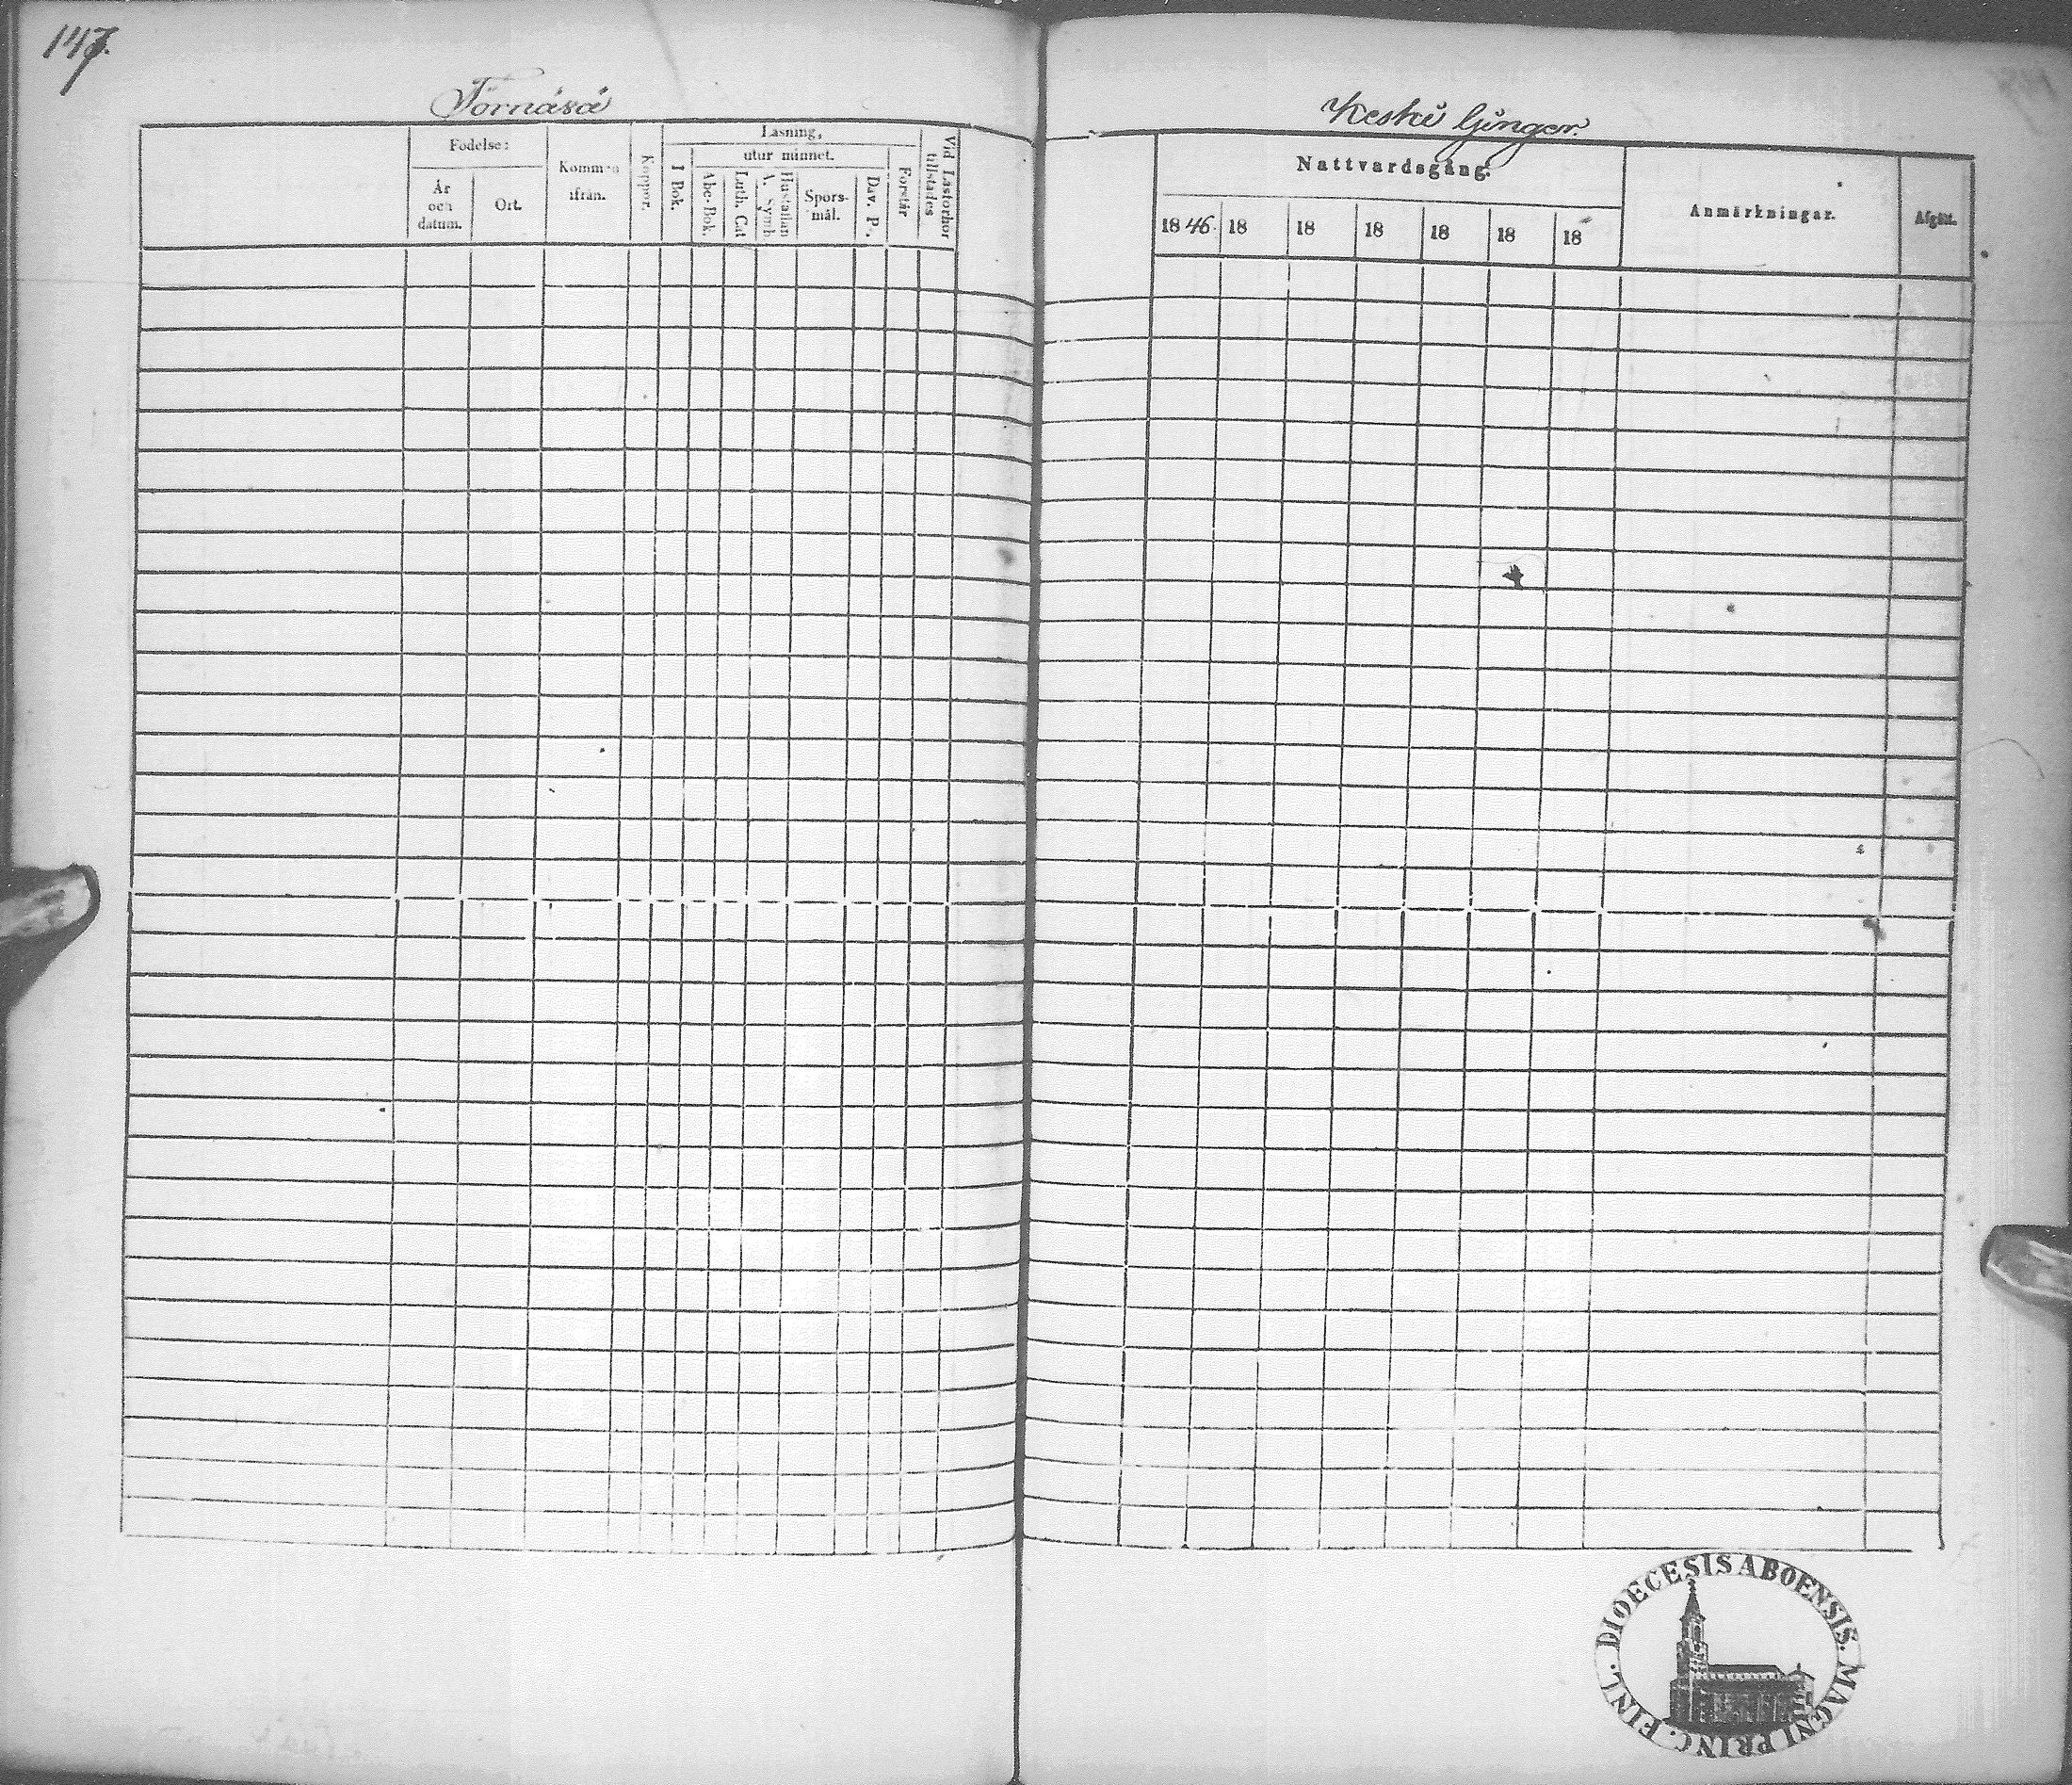 147.
Törnäsä
Födelse:
År och datum.
Ort.
Kommen ifrån.
Koppor.
Läsning,
I Bok.
utur minnet.
Abc-Bok.
Luth. Cat
Hustaflan A. Symb.
Spörs-mål.
Dav. Ps.
Förstår
Vid Läsförhör tillstädes
Keski
Nattvardsgång.
1846. 18 18 18 18 18 18
Anmärkningar.
Afgått.
DIOECESIS ABOENSIS. MAGNI PRINC. FINL.